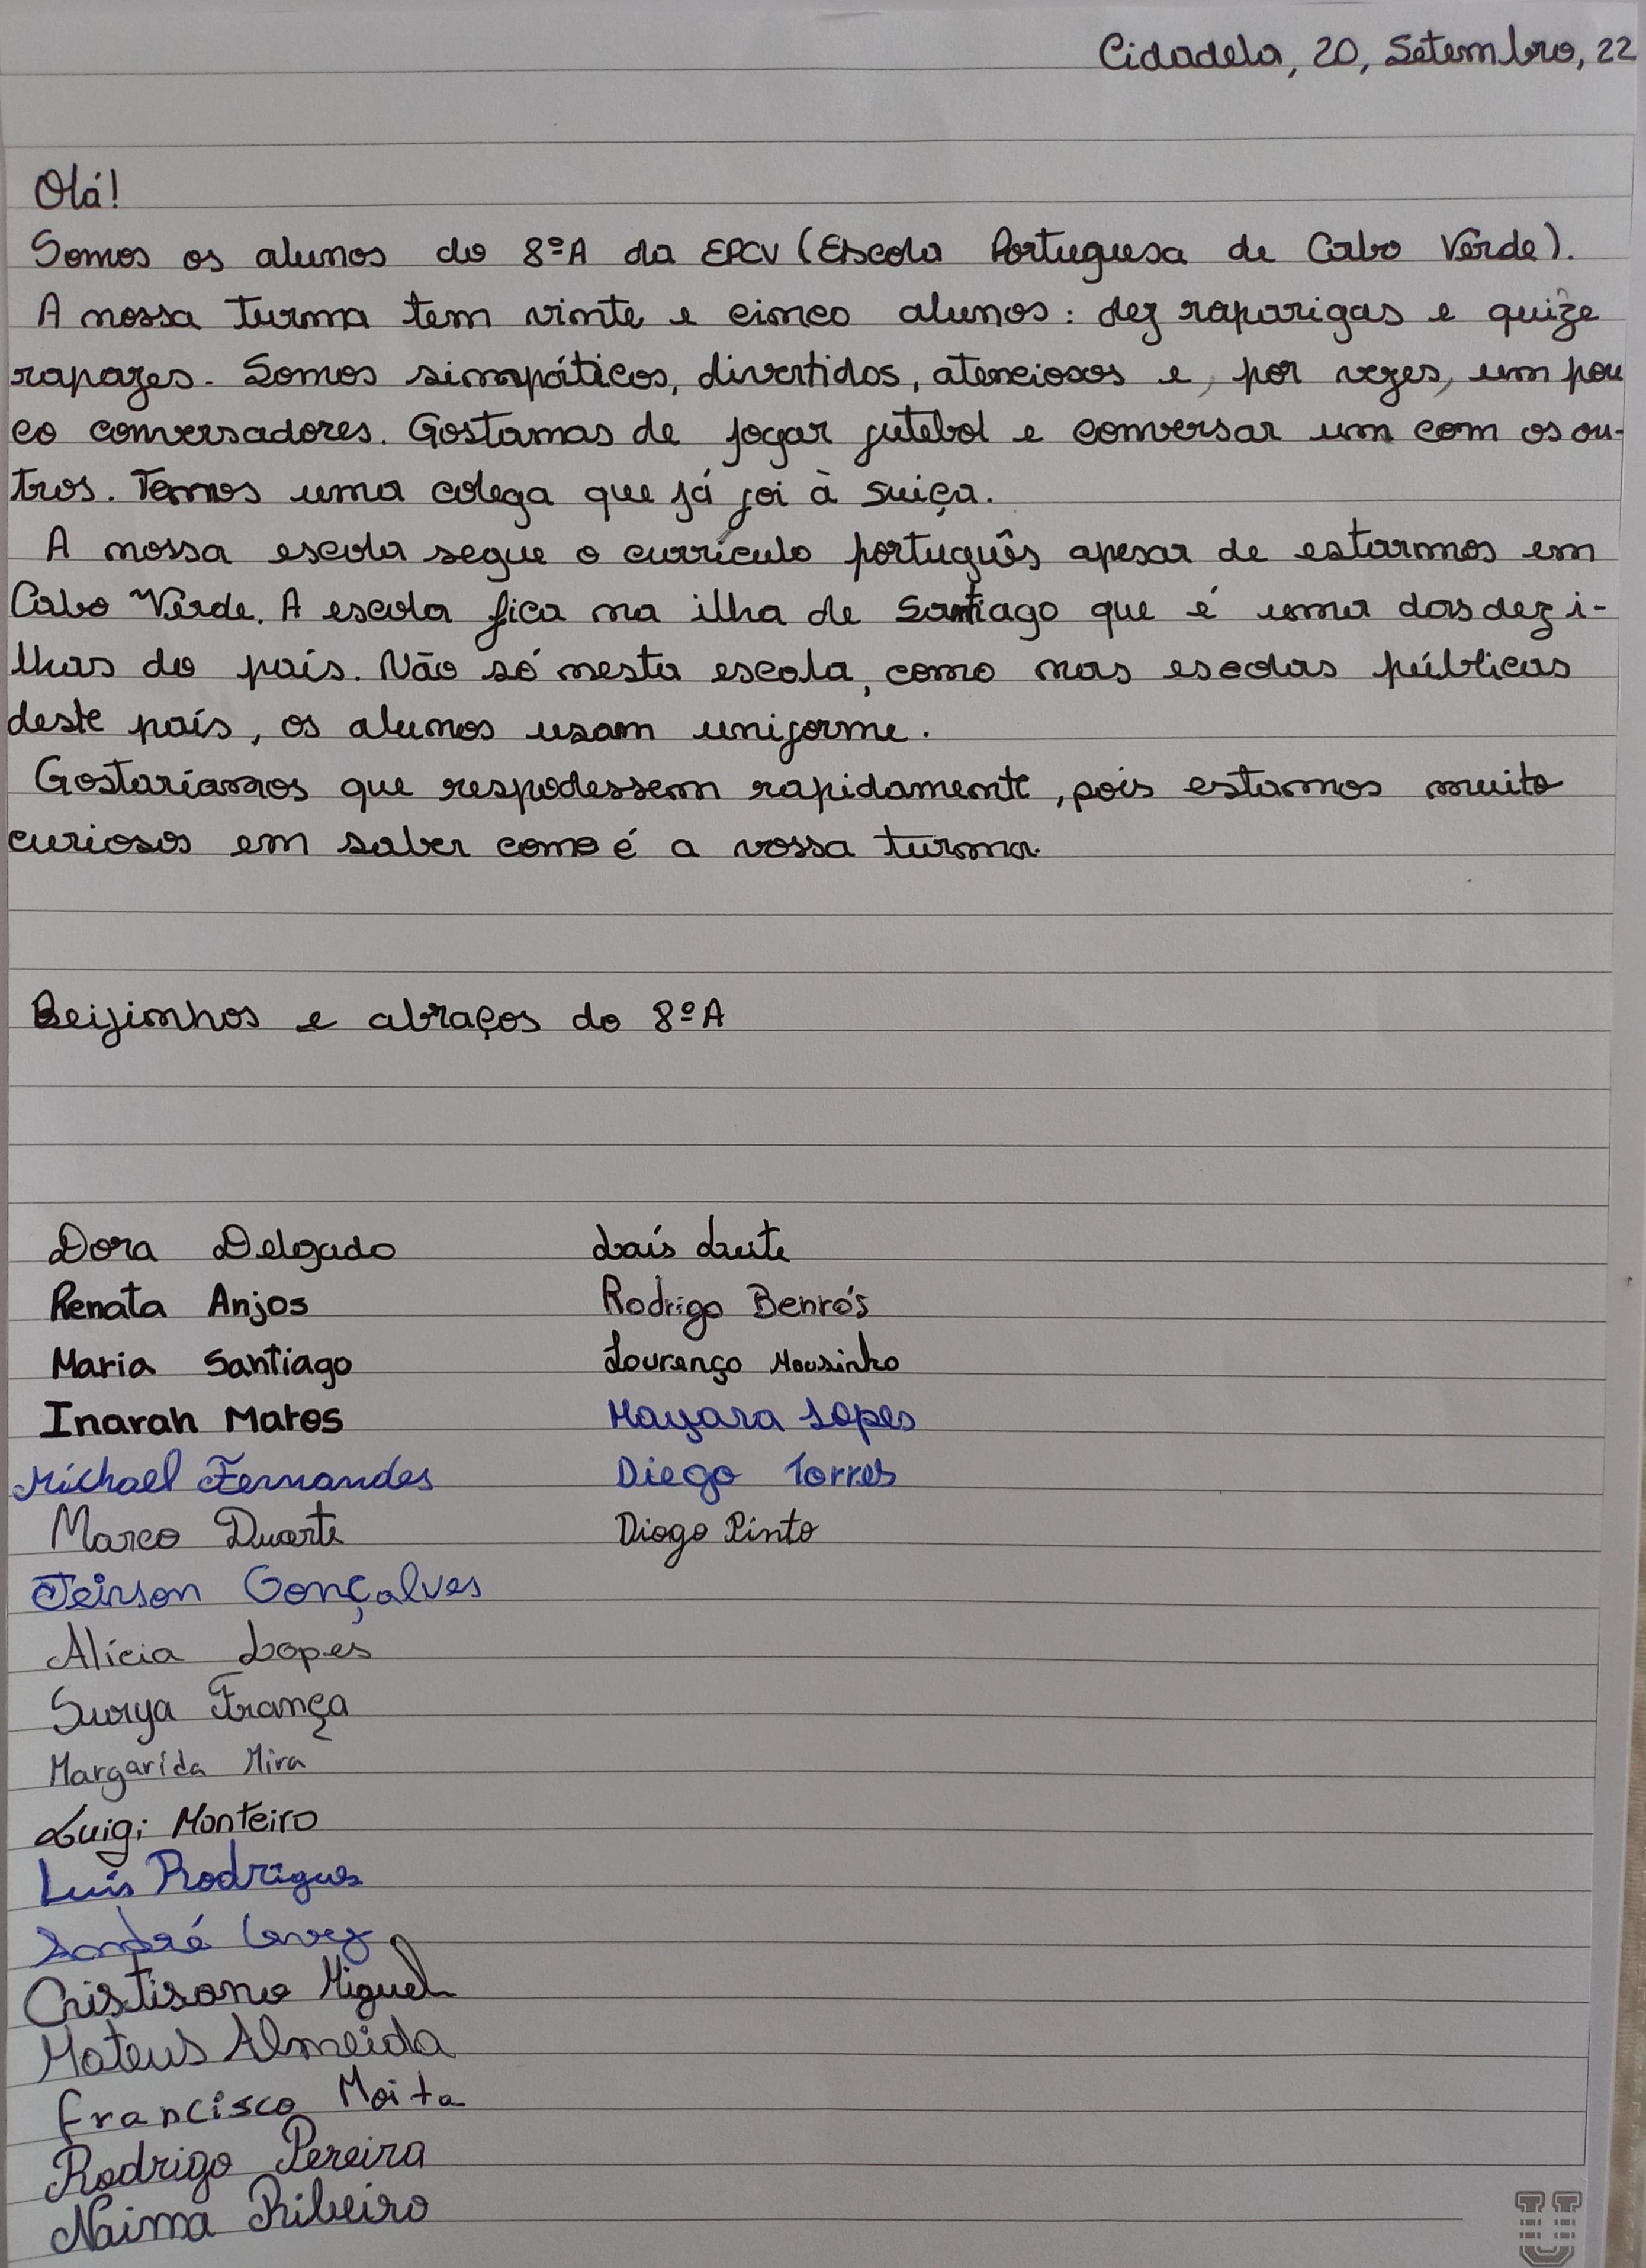 Cidadela, 20, Setembro, 22
Olá!
Somos os alunos do 8ºA da EPCV (Escola Portuguesa de Cabo Verde).
A nossa turma tem vinte e cinco alunos: dez raparigas e quize
rapazes. Somos simpáticos, divertidos, atenciosos e, por vezes, um pou
co conversadores. Gostamas de jogar futebol e conversar um com os ou-
tros. Temos uma colega que já foi à suiça.
A nossa escola segue o currículo português apesar de estarmos em
Cabo Verde. A escola fica na ilha de Santiago que é uma das dez i-
lhas do país. Não só nesta escola, como nas escolas públicas
deste país, os alunos usam uniforme.
Gostaríamos que respodessem rapidamente, pois estamos muito
curiosos em saber como é a vossa turma.
Beijinhos e abraços do 8ºA
Dora Delgado
Renata Anjos
Maria Santiago
Inarah Matos
Michael Fernandes
Marco Duarte
Jeirson Gonçalves
Alícia Lopes
Surya França
Margarida Mira
Luigi Monteiro
Luís Rodrigues
Sandré
Cristisano Miguel
Mateus Almeida
Francisco Moita
Rodrigo Pereira
Naima Ribeiro
Laís Leite
Rodrigo Benrós
Lourenço Mousinho
Mayara Lopes
Diego Torres
Diogo Pinto
U